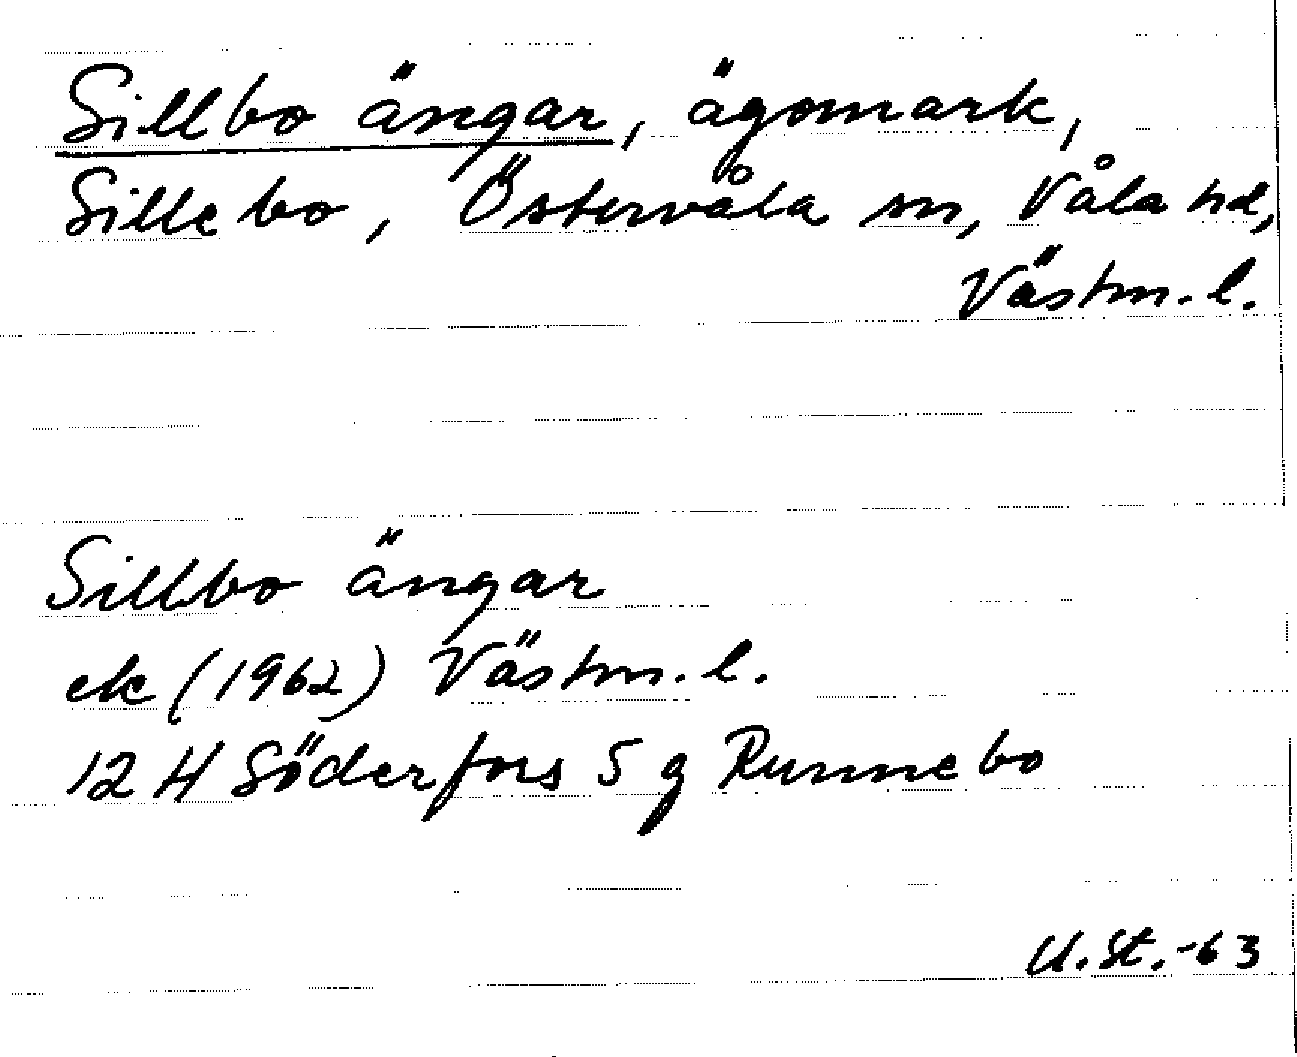 Sillbo ängar, ägomark,
Sillebo, Östervåla sn, Våla hd,
Västm. l.
Sillbo ängar
ek (1962) Västm. l.
12 H Söderfors 5 g Runnebo
U.St.-63